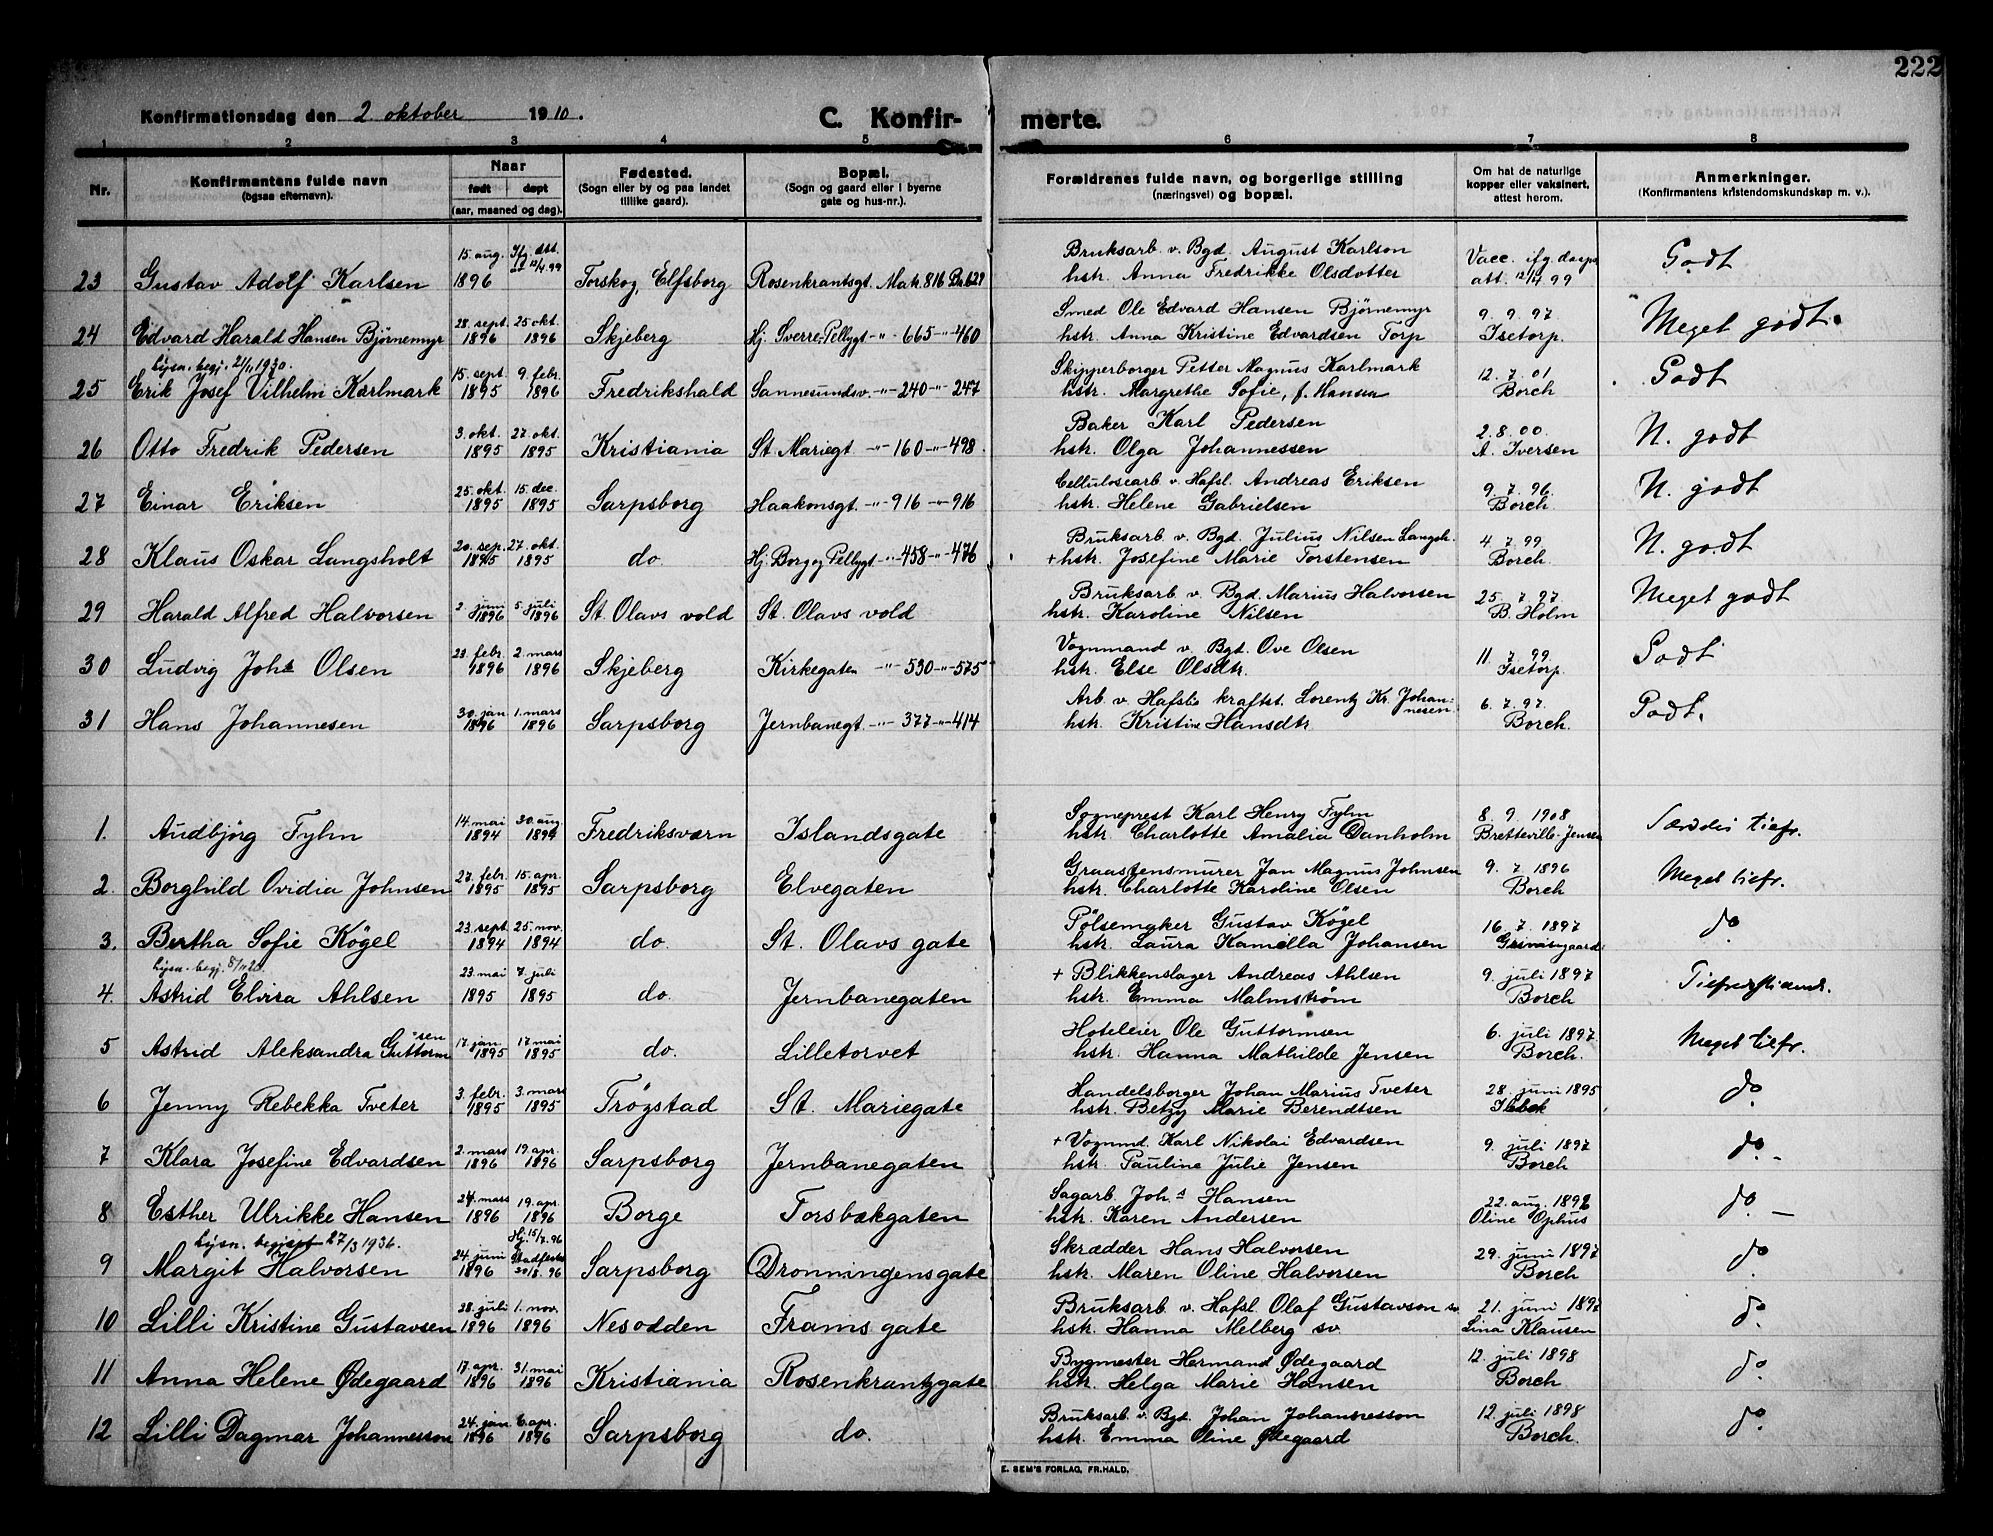 222
Konfirmationsdag den 2. oktober 1910.
C. Konfirmerte.
1 2 3 4 5 6 7 8
Nr.
Konfirmantens fulde navn
(ogsaa efternavn).
Naar
født døpt
(aar, maaned og dag).
Fødested.
(Sogn eller by og paa landet
tillike gaard).
Bopæl.
(Sogn og gaard eller i byerne
gate og hus-nr.).
Forældrenes fulde navn, og borgerlige stilling
(næringsvei) og bopæl.
Om hat de naturlige
kopper eller vaksinert,
attest herom.
Anmerkninger.
(Konfirmantens kristendomskundskap m. v.).
15. aug. Ifg. att. Bruksarb. v. Bgd. August Karlson Vacc. ifg. daaps
23 Gustav Adolf Karlsen 1896 12/4 99 Torskog, Elfsborg Rosenkrantsgt. Matr. 816 hstr. Anna Fredrikke Olsdotter att. 12/4 99 Godt
28. sept. 25. okt. Smed Ole Edvard Hansen Bjørnemyr 9. 9. 97.
24 Edvard Harald Hansen Bjørnemyr 1896 1896 Skjeberg Hj. Sverre-Pellygt -"- 665 -"- 460 hstr. Anna Kristine Edvardsen Torp Isetorp. Meget godt.
lysn. begj. 21/11 1930.
15. sept. 9. febr. Skipperborger Petter Magnus Karlmark 12. 7. 01
25 Erik Josef Vilhelm Karlmark 1895 1896 Fredrikshald Sannesundsv. -"- 240 -"- 247 hstr. Margrethe Sofie, f. Hansen Borch Godt
3. okt. 27. okt. Baker Karl Pedersen 2. 8. 00.
26 Otto Fredrik Pedersen 1895 1895 Kristiania St. Mariegt -"- 160 -"- 498. hstr. Olga Johannessen A. Iversen N. godt
25. okt. 15. dec. Cellulosearb. v. Hafsl. Andreas Eriksen 9. 7. 96.
27 Einar Eriksen 1895 1895 Sarpsborg Haakonsgt. -"- 916 -"- 916 hstr. Helene Gabrielsen Borch. N. godt
20. sep. 27. okt. Bruksarb. v. Bgd. Julius Nilsen Langsh. 4. 7. 99
28 Klaus Oskar Langsholt 1895 1895 do. Hj. Borg og Pellygt. -"- 458 -"- 476 + hstr. Josefine Marie Torstensen Borch. N. godt
2. juni 5. juli Bruksarb. v. Bgd. Marius Halvorsen 25. 7. 97.
29 Harald Alfred Halvorsen 1896 1896 St. Olavs vold St. Olavs vold hstr. Karoline Nilsen B. Holm Meget godt
23. febr. 2. mars Vognmand v. Bgd. Ove Olsen 11. 7. 99
30 Ludvig Johs Olsen 1896 1896 Skjeberg Kirkegaten -"- 530 -"- 575 hstr. Else Olsdtr. Isetorp. Godt
30. jan. 1. mars Arb. v. Hafsls kraftst. Lorentz Kr. Johannesen 6. 7. 97.
31 Hans Johannesen 1896 1896 Sarpsborg Jernbanegt. -"- 377 -"- 414 hstr. Kristine Hansdtr. Borch. Godt.
14. mai 30. aug. Sogneprest Karl Henry Fyhn 8. 9. 1908
1. Audbjörg Fyhn 1894 1894 Fredriksværn Islandsgate hstr. Charlotte Amalia Danholm Bretteville-Jensen Særdes tilfr.
27. febr. 15. apr. Graastensmurer Jan Magnus Johnsen 9. 7. 1896
2. Borghild Ovidia Johnsen 1895 1895 Sarpsborg Elvegaten hstr. Charlotte Karoline Olsen Borch Meget tilfr.
23. sept. 25. nov. Pølsemaker Gustav Kögel 16. 7. 1897
3. Bertha Sofie Kögel 1894 1894 do. St. Olavs gate hstr. Laura Kamilla Johansen do
lysn. begj.
23. mai 7. juli + Blikkenslager Andreas Ahlsen 9. juli 1897
4. Astrid Elvira Ahlsen 1895 1895 do. Jernbanegaten hstr. Emma Malmstrøm Borch Tilfredsstillende.
17. jan. 17. mai Hoteleier Ole Guttormsen 6. juli 1897
5 Astrid Aleksandra Guttormsen 1895 1895 do. Lilletorvet hstr. Hanna Mathilde Jensen Borch. Meget tilfr.
3. febr. 3. mars Handelsborger Johan Marius Tveter 28. juni 1895
6 Jenny Rebekka Tveter 1895 1895 Trögstad St. Mariegate hstr. Betzy Marie Berendtsen do
2. mars 19. apr. + Vognmd. Karl Nikolai Edvardsen 9. juli 1897
7 Klara Josefine Edvardsen 1896 1896 Sarpsborg Jernbanegaten hstr. Pauline Julie Jensen Borch do. -
24. mars 19. apr. Sagarb. Joh.s Hansen 22. aug. 1896
8 Esther Ulrikke Hansen 1896 1896 Borge Torsbækgaten hstr. Karen Andersen Oline Ophus do. -
lysn. begjært 27/3 1936. Hj. 15/7. 96
24. juni Stadfestet Skrædder Hans Halvorsen 29. juni 1897
9 Margit Halvorsen 1896 30/8. 96 Sarpsborg Dronningensgate hstr. Maren Oline Halvorsen Borch do
28. juli 1. nov. Bruksarb. v. Hafsl. Olaf Gustavson sv. 21. juni 1897
10 Lilli Kristine Gustavsen 1896 1896 Nesodden Frams gate hstr. Hanna Melberg sv. Lina Klausen do.
17. apr. 31. mai Bygmester Hermand Ødegaard 12. juli 1898
11 Anna Helene Ødegaard 1896 1896 Kristiania Rosenkrantzgate hstr. Helga Marie Hansen Borch do.
24. jan. 6. apr. Bruksarb. v. Bgd. Johan Johannesson 12. juli 1898
12 Lilli Dagmar Johannesson 1896 1896 Sarpsborg do. hstr. Emma Oline Ødegaard Borch. do.
E. SEM'S FORLAG, FR.HALD.